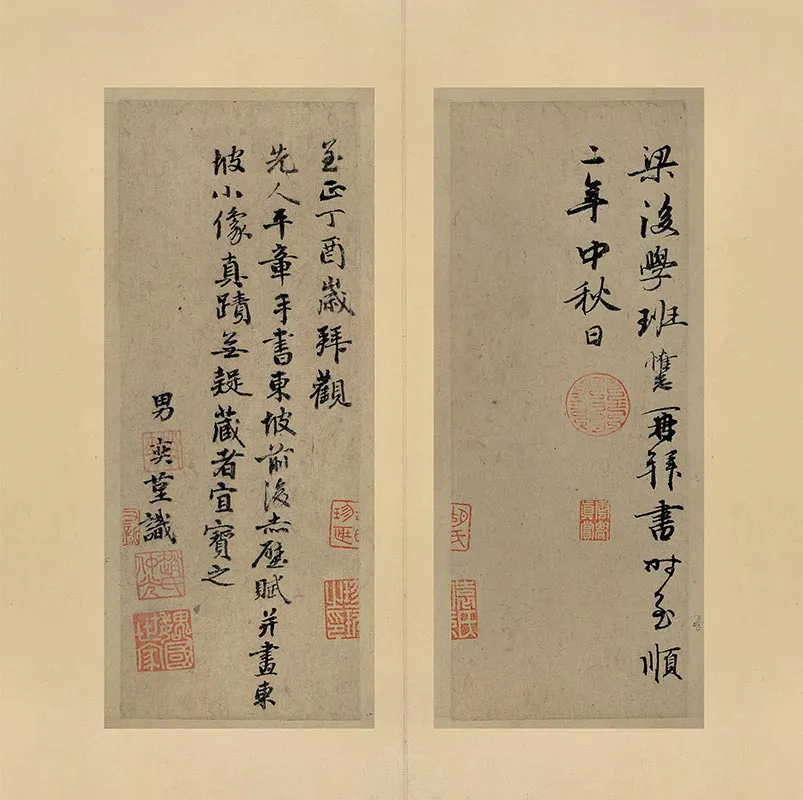 梁後學班惟志再拜書時至順
二年中秋日
至正丁酉歲拜觀
先人平章手書東坡前後赤壁賦并畫東
坡小像真蹟無疑藏者宜寶之
男奕堇識
趙氏仲光
魏國世家